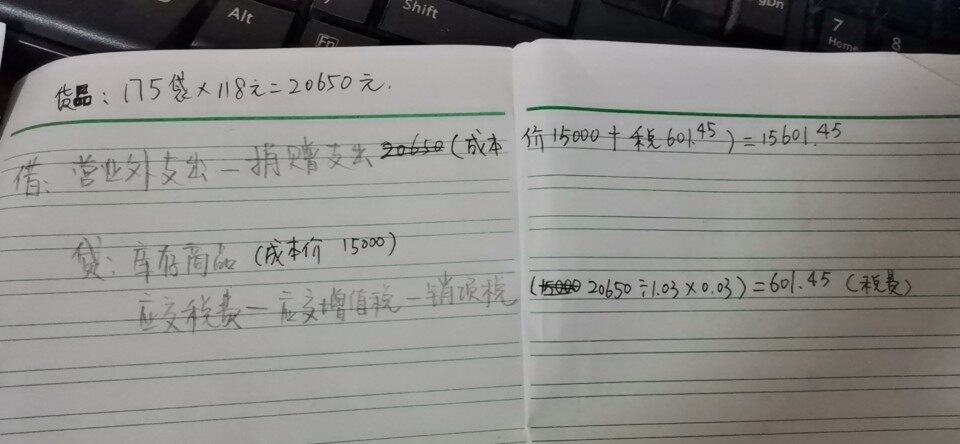 Alt
Shift
Fn
7
Home
8
货品：175袋×118元=20650元.
借：营业外支出—捐赠支出 20650（成本价15000+税601.45）=15601.45
贷：库存商品（成本价 15000）
应交税费—应交增值税—销项税（15000 20650÷1.03×0.03）=601.45（税费）